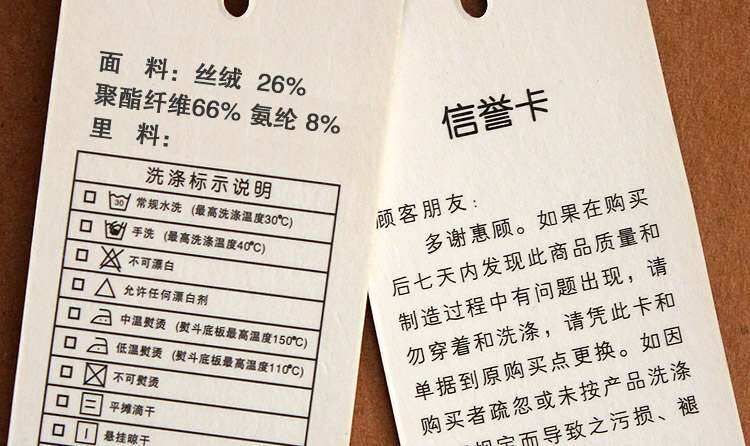 面 料：丝绒 26%
聚酯纤维66% 氨纶 8%
里 料：
洗涤标示说明
30 常规水洗 (最高洗涤温度30℃)
手洗 (最高洗涤温度40℃)
不可漂白
允许任何漂白剂
中温熨烫 (熨斗底板最高温度150℃)
低温熨烫 (熨斗底板最高温度110℃)
不可熨烫
平摊滴干
悬挂晾干
信誉卡
顾客朋友：
多谢惠顾。如果在购买
后七天内发现此商品质量和
制造过程中有问题出现，请
勿穿着和洗涤，请凭此卡和
单据到原购买点更换。如因
购买者疏忽或未按产品洗涤
规定而导致之污损、褪